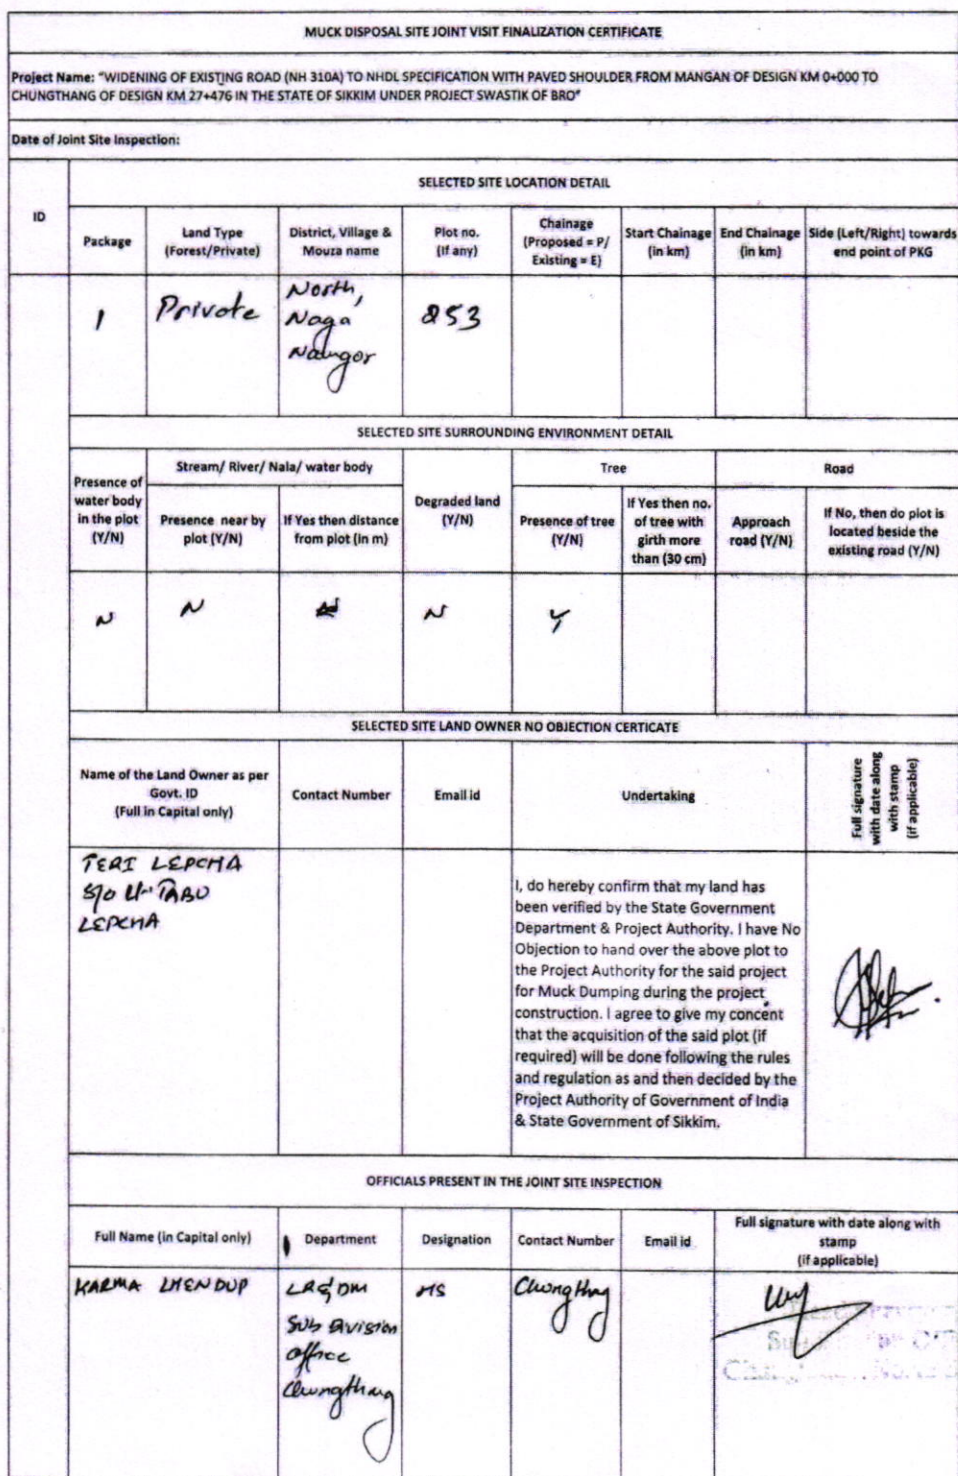 MUCK DISPOSAL SITE JOINT VISIT FINALIZATION CERTIFICATE
Project Name: "WIDENING OF EXISTING ROAD (NH 310A) TO NHDL SPECIFICATION WITH PAVED SHOULDER FROM MANGAN OF DESIGN KM 0+000 TO
CHUNGTHANG OF DESIGN KM 27+476 IN THE STATE OF SIKKIM UNDER PROJECT SWASTIK OF BRO"
Date of Joint Site Inspection:
ID
SELECTED SITE LOCATION DETAIL
Package
Land Type
(Forest/Private)
District, Village &
Mouza name
Plot no.
(if any)
Chainage
(Proposed = P/
Existing = E)
Start Chainage
(in km)
End Chainage
(in km)
Side (Left/Right) towards
end point of PKG
1
Private
North,
Naga
Namgor
853
SELECTED SITE SURROUNDING ENVIRONMENT DETAIL
Presence of
water body
in the plot
(Y/N)
Stream/ River/ Nala/ water body
Presence near by
plot (Y/N)
If Yes then distance
from plot (in m)
Degraded land
(Y/N)
Tree
Presence of tree
(Y/N)
If Yes then no.
of tree with
girth more
than (30 cm)
Road
Approach
road (Y/N)
If No, then do plot is
located beside the
existing road (Y/N)
N
N
N
Y
SELECTED SITE LAND OWNER NO OBJECTION CERTICATE
Name of the Land Owner as per
Govt. ID
(Full in Capital only)
Contact Number
Email id
Undertaking
Full signature
with date along
with stamp
(if applicable)
TERI LEPCHA
S/O Lt. TABU
LEPCHA
I, do hereby confirm that my land has
been verified by the State Government
Department & Project Authority. I have No
Objection to hand over the above plot to
the Project Authority for the said project
for Muck Dumping during the project
construction. I agree to give my concent
that the acquisition of the said plot (if
required) will be done following the rules
and regulation as and then decided by the
Project Authority of Government of India
& State Government of Sikkim.
OFFICIALS PRESENT IN THE JOINT SITE INSPECTION
Full Name (in Capital only)
Department
Designation
Contact Number
Email id
Full signature with date along with
stamp
(if applicable)
KARMA LHENDUP
LR&DM
Sub Division
office
Chungthang
Chungthang